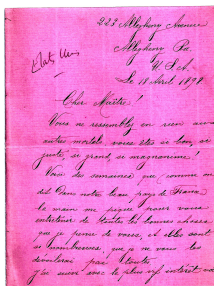 223 Allegheny Avenue
Allegheny Pa.
U S A.
Le 18 Avril 1898
Cher Maître!
Vous ne ressemblez en rien aux
autres mortels vous êtes si bon, si
juste, si grand, si magnanime!
Voici des semaines que, comme on
dit dans notre beau pays de France
la main me pique pour vous
entretenir de toutes les bonnes choses
que je pense de vous, et elles sont
si nombreuses, que je ne vous les
dévoilerai pas toutes.
J'ai suivi avec le plus vif intérêt